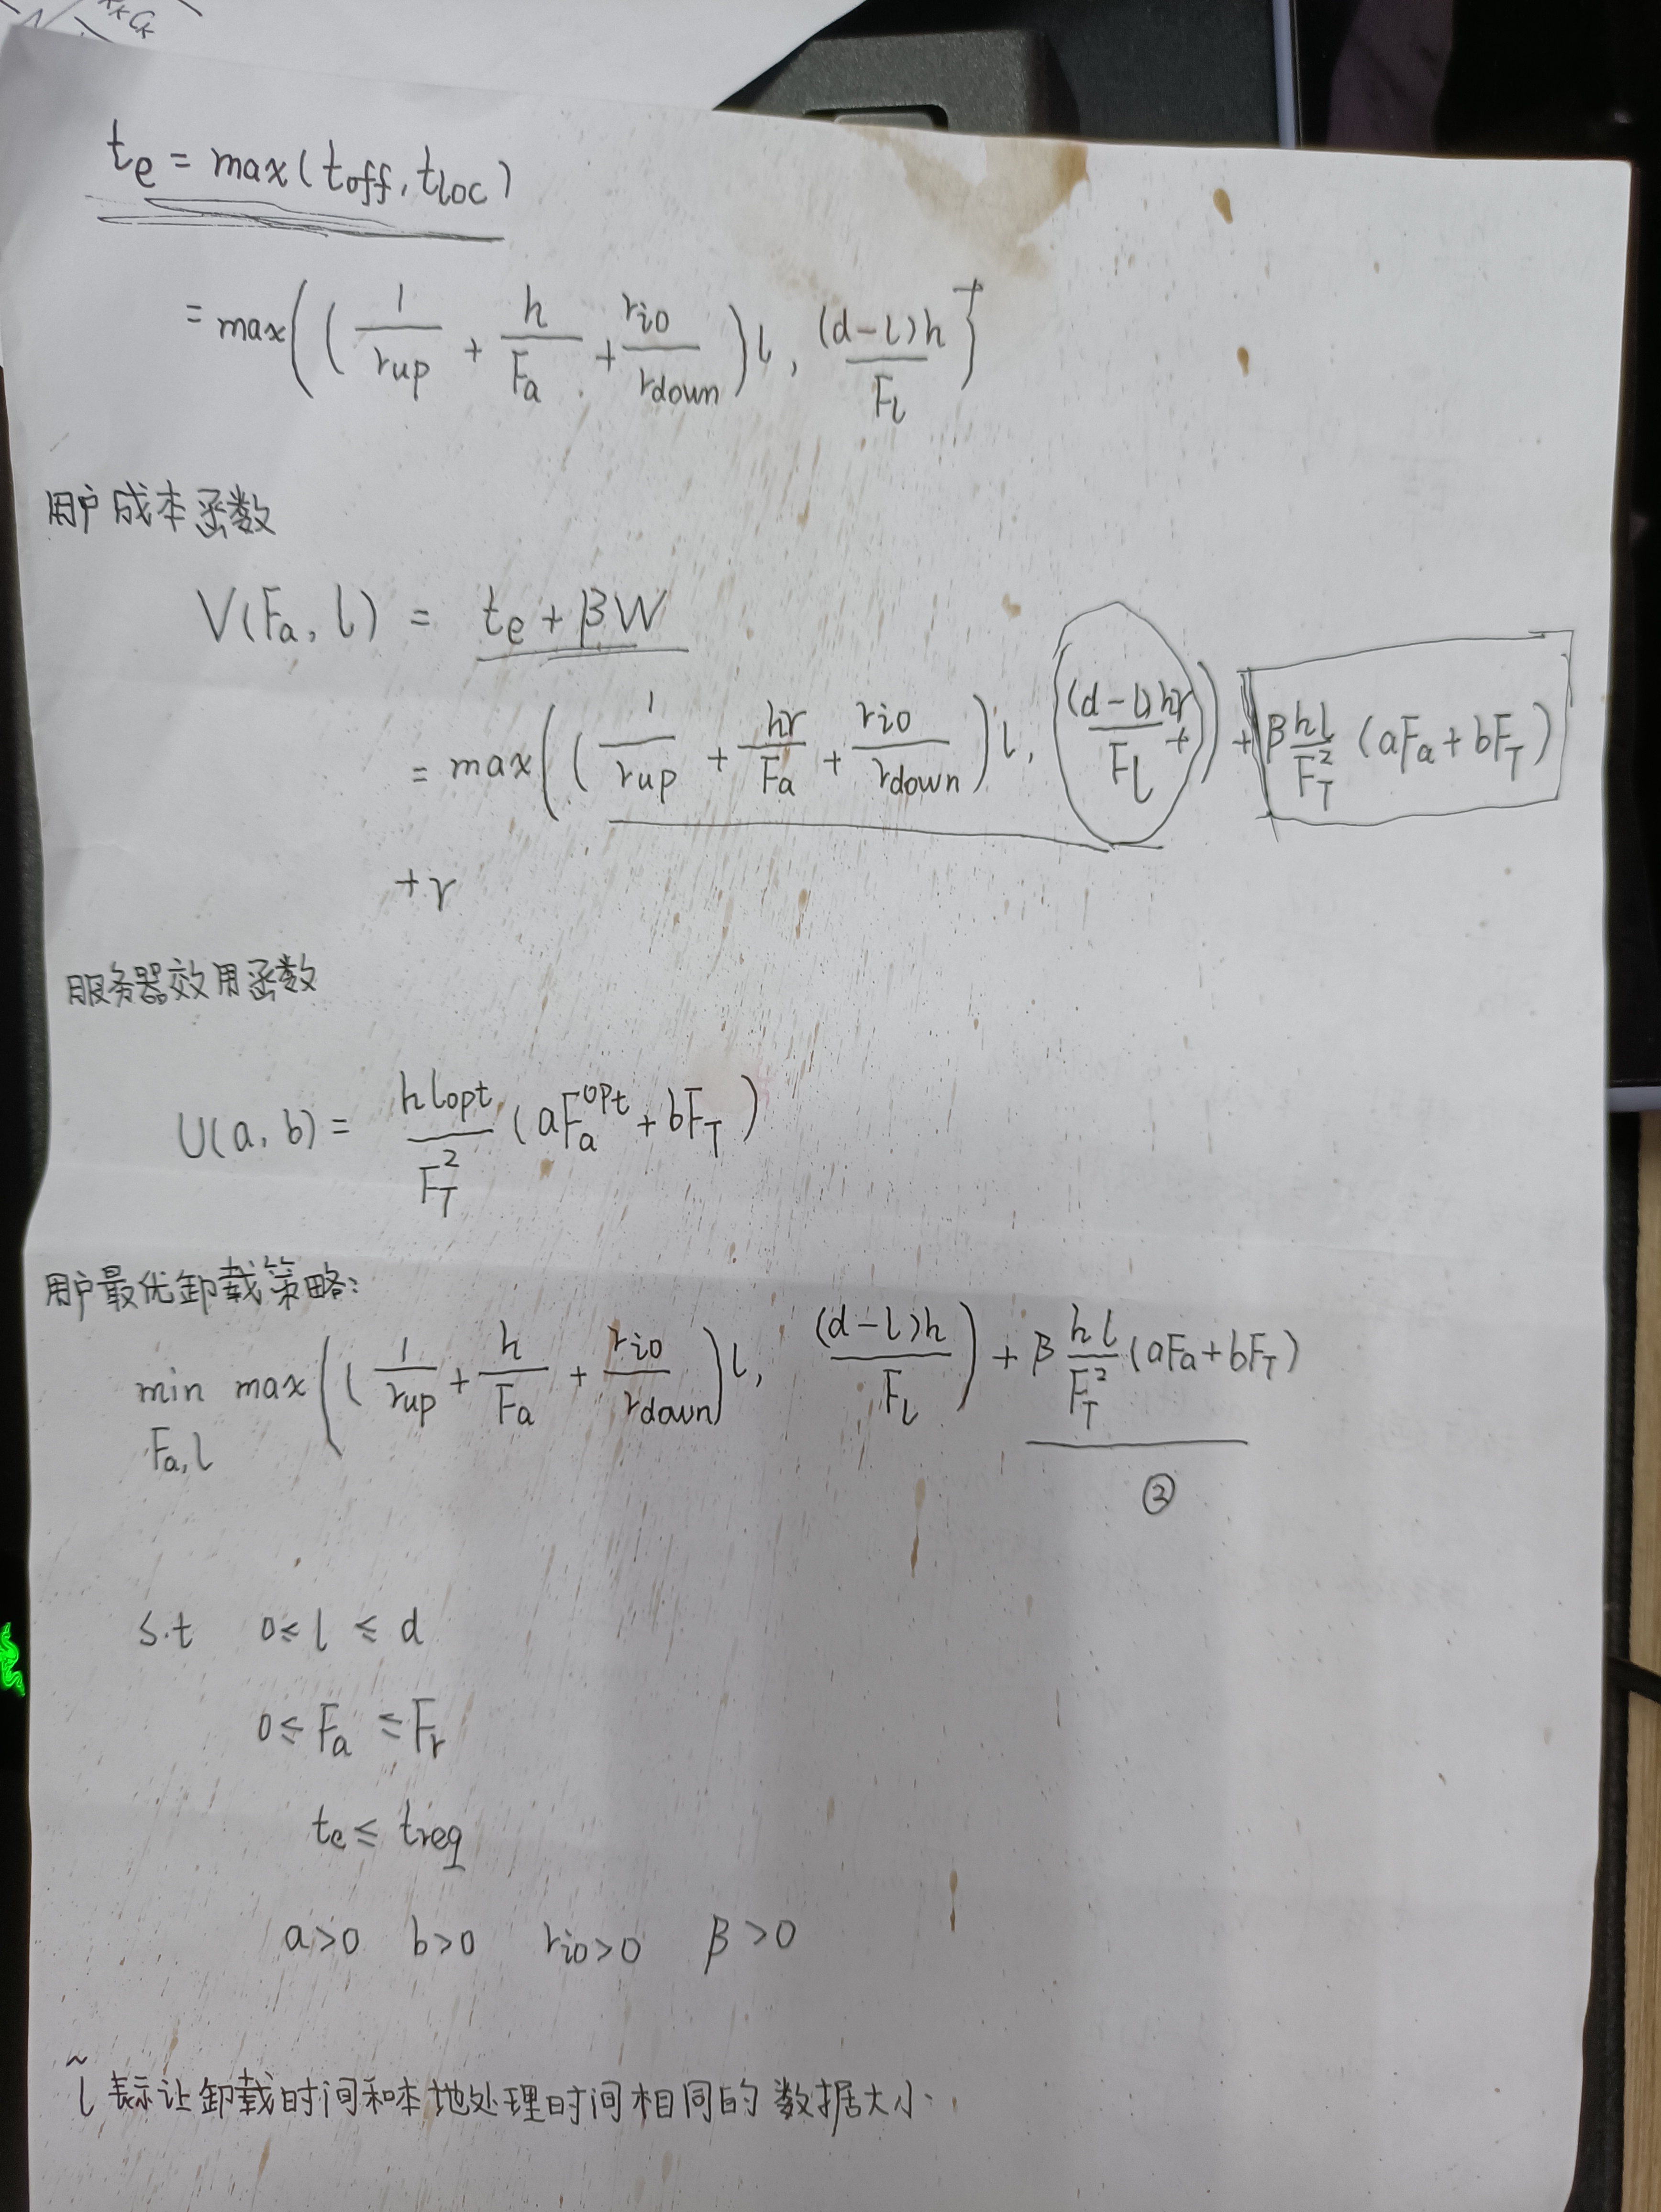 t_e = max(t_off, t_loc)
= max((1/r_up + h/F_a + r_io/r_down)l, (d-l)h/F_l)
用户成本函数
V(F_a, l) = t_e + βW
= max((1/r_up + hr/F_a + r_io/r_down)l, (d-l)hr/F_l +) + β hl/F_T^2 (aF_a + bF_T)
+ r
服务器效用函数
U(a, b) = h l_opt/F_T^2 (aF_a^opt + bF_T)
用户最优卸载策略:
min max((1/r_up + h/F_a + r_io/r_down)l, (d-l)h/F_l) + β hl/F_T^2 (aF_a + bF_T)
F_a, l
②
s.t 0 ≤ l ≤ d
0 ≤ F_a ≤ F_r
t_e ≤ t_req
a>0 b>0 r_io>0 β>0
l̃ 表示让卸载时间和本地处理时间相同的数据大小.